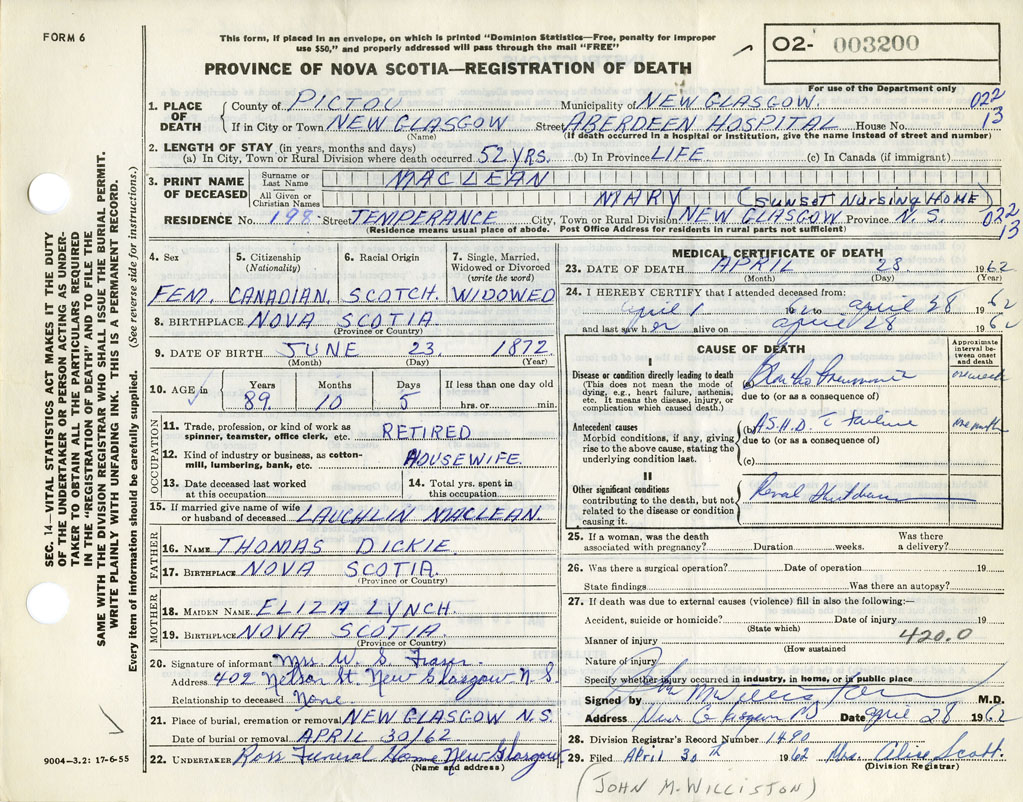 FORM 6
This form, if placed in an envelope, on which is printed "Dominion Statistics—Free, penalty for improper
use $50," and properly addressed will pass through the mail "FREE"
O2- 003200
PROVINCE OF NOVA SCOTIA—REGISTRATION OF DEATH
For use of the Department only
1. PLACE OF DEATH { County of PICTOU Municipality of NEW GLASGOW. 022
If in City or Town NEW GLASGOW Street ABERDEEN HOSPITAL House No. 13
(Name) (If death occurred in a hospital or institution, give the name instead of street and number)
2. LENGTH OF STAY (in years, months and days)
(a) In City, Town or Rural Division where death occurred 52 YRS. (b) In Province LIFE (c) In Canada (if immigrant)
3. PRINT NAME OF DECEASED { Surname or Last Name MACLEAN
All Given or Christian Names MARY (SUNSET NURSING HOME)
RESIDENCE No. 198 Street TEMPERANCE City, Town or Rural Division NEW GLASGOW Province N.S. 022
(Residence means usual place of abode. Post Office Address for residents in rural parts not sufficient) 13
SEC. 14—VITAL STATISTICS ACT MAKES IT THE DUTY
OF THE UNDERTAKER OR PERSON ACTING AS UNDER-
TAKER TO OBTAIN ALL THE PARTICULARS REQUIRED
IN THE "REGISTRATION OF DEATH" AND TO FILE THE
SAME WITH THE DIVISION REGISTRAR WHO SHALL ISSUE THE BURIAL PERMIT.
WRITE PLAINLY WITH UNFADING INK. THIS IS A PERMANENT RECORD.
Every item of information should be carefully supplied. (See reverse side for instructions.)
4. Sex
FEM.
5. Citizenship
(Nationality)
CANADIAN.
6. Racial Origin
SCOTCH.
7. Single, Married,
Widowed or Divorced
(write the word)
WIDOWED
8. BIRTHPLACE NOVA SCOTIA
(Province or Country)
9. DATE OF BIRTH JUNE 23 1872
(Month) (Day) (Year)
10. AGE in
Years 89. Months 10 Days 5 If less than one day old
hrs. or min.
OCCUPATION
11. Trade, profession, or kind of work as
spinner, teamster, office clerk, etc. RETIRED
12. Kind of industry or business, as cotton-
mill, lumbering, bank, etc. HOUSEWIFE.
13. Date deceased last worked
at this occupation
14. Total yrs. spent in
this occupation
15. If married give name of wife
or husband of deceased LAUCHLIN MACLEAN.
FATHER
16. NAME THOMAS DICKIE.
17. BIRTHPLACE NOVA SCOTIA.
(Province or Country)
MOTHER
18. MAIDEN NAME ELIZA LYNCH.
19. BIRTHPLACE NOVA SCOTIA.
(Province or Country)
20. Signature of informant Mrs W. S. Fraser.
Address 402 Nelson St. New Glasgow N.S.
Relationship to deceased None.
21. Place of burial, cremation or removal NEW GLASGOW N.S.
Date of burial or removal APRIL 30/62
22. UNDERTAKER Ross Funeral Home New Glasgow
(Name and address)
9004—3.2: 17-6-55
MEDICAL CERTIFICATE OF DEATH
23. DATE OF DEATH APRIL 28 1962
(Month) (Day) (Year)
24. I HEREBY CERTIFY that I attended deceased from:
April 1 1962 to April 28 1962
and last saw her alive on April 28 1962
CAUSE OF DEATH
Approximate interval between onset and death
I
Disease or condition directly leading to death
(This does not mean the mode of
dying, e.g., heart failure, asthenia,
etc. It means the disease, injury, or
complication which caused death.)
(a) Broncho Pneumonia one week
due to (or as a consequence of)
Antecedent causes
Morbid conditions, if any, giving
rise to the above cause, stating the
underlying condition last.
(b) A.S.H.D. c Failure one month
due to (or as a consequence of)
(c)
II
Other significant conditions
contributing to the death, but not
related to the disease or condition
causing it.
Renal
25. If a woman, was the death
associated with pregnancy? Duration weeks. Was there
a delivery?
26. Was there a surgical operation? Date of operation 19
State findings Was there an autopsy?
27. If death was due to external causes (violence) fill in also the following:—
Accident, suicide or homicide? Date of injury 19
(State which)
Manner of injury 420.0
(How sustained
Nature of injury
Specify whether injury occurred in industry, in home, or in public place
Signed by M.D.
Address New Glasgow NS Date April 28 1962
28. Division Registrar's Record Number 1490
29. Filed April 30th 1962 Mrs. Alice Scott.
(Division Registrar)
(JOHN M. WILLISTON)